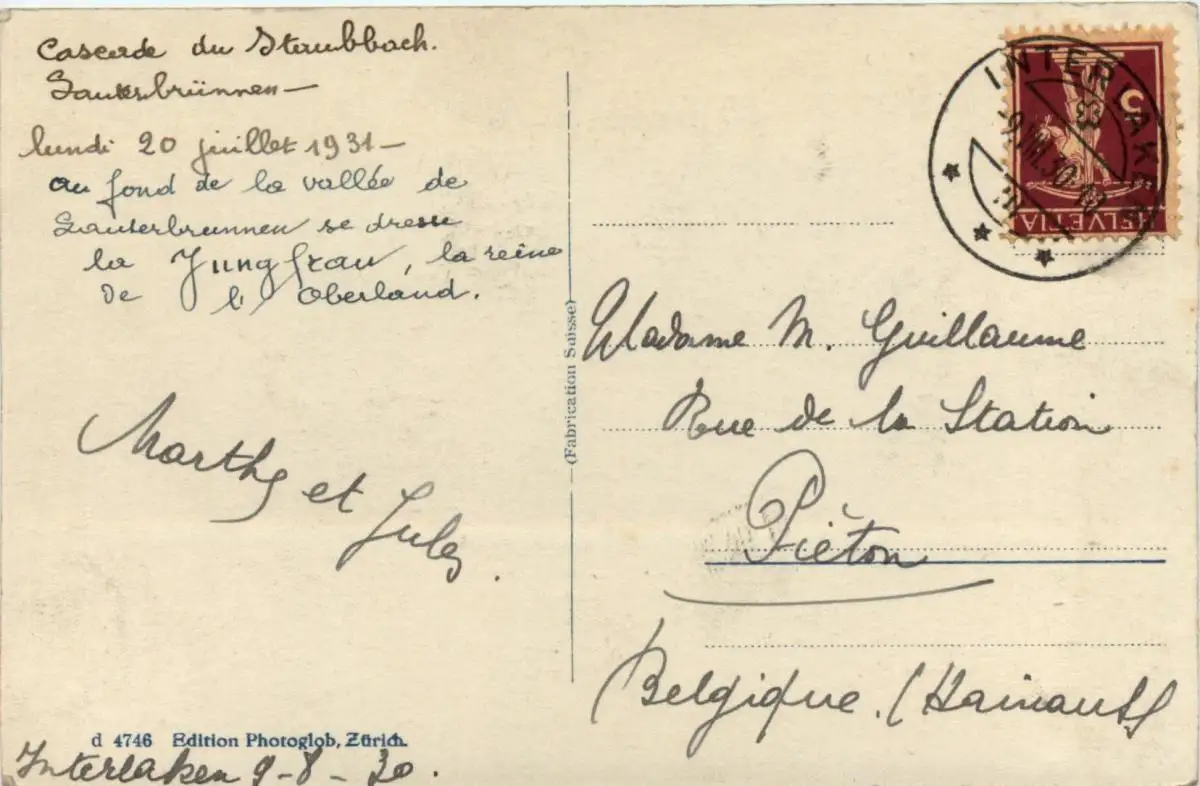 Cascade du Staubbach.
Lauterbrünnen —
lundi 20 juillet 1931 —
au fond de la vallée de
Lauterbrunnen se dresse
la Jungfrau, la reine
de l'Oberland.
Marthe et Jules.
d 4746 Edition Photoglob, Zürich.
Interlaken 9-8-30.
(Fabrication Suisse)
INTERLAKEN
-9.VIII.30
5
HELVETIA
Madame M. Guillaume
Rue de la Station
Piéton
Belgique. (Hainaut)